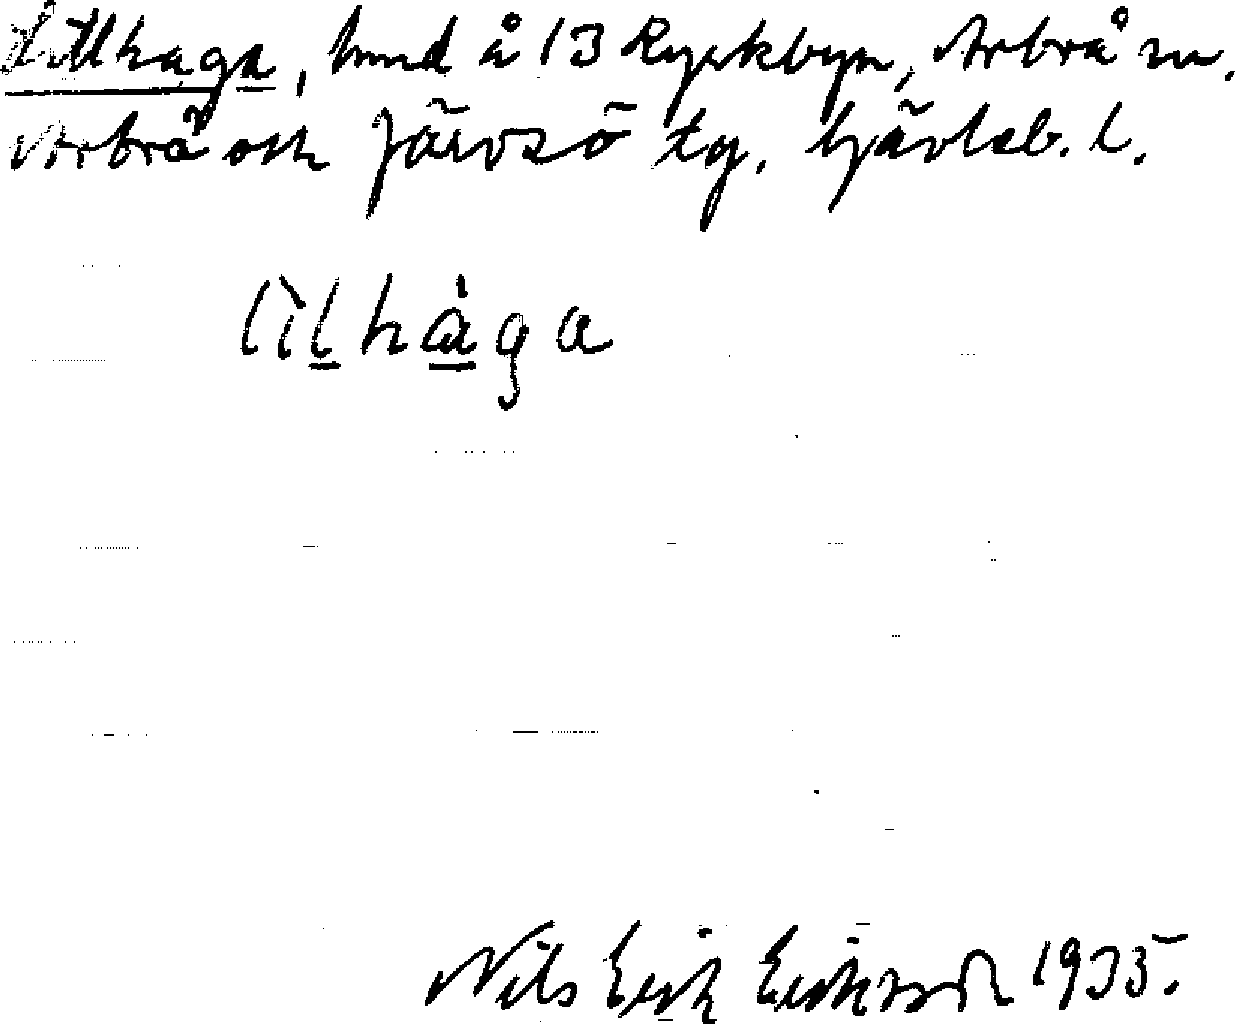 Lillhaga, hmd å 13 Ryckbyn, Arbrå sn.
Arbrå och Järvsö tg. Gävleb. l.
lìlhàga
Nils Erik Eriksson 1935.